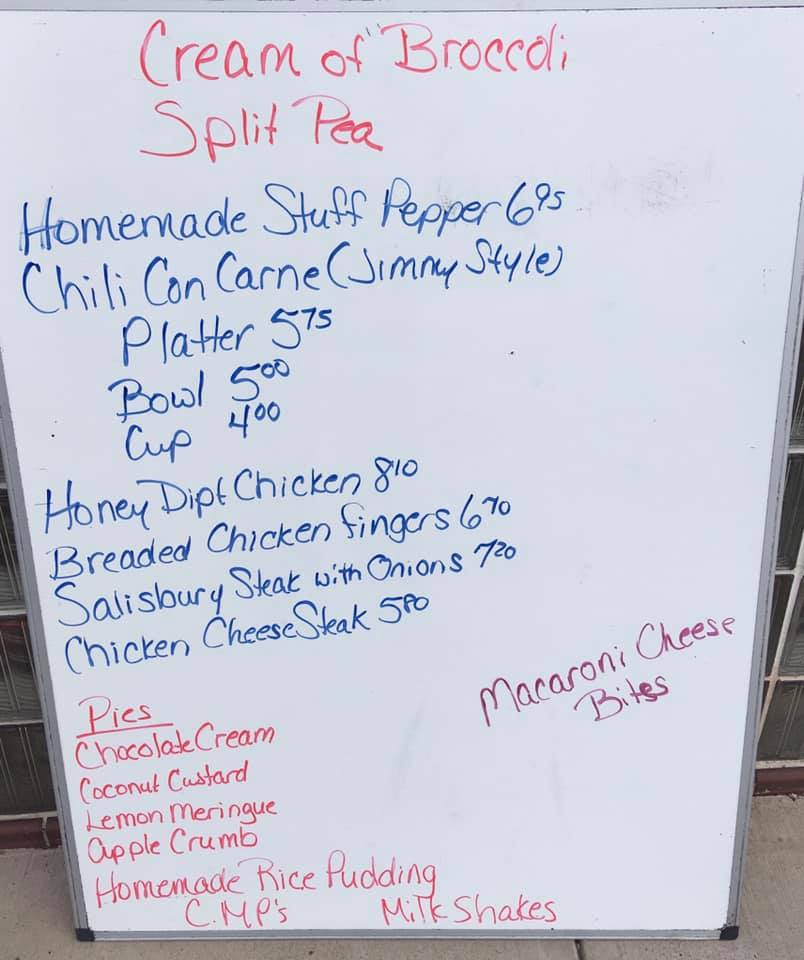 Cream of Broccoli
Split Pea
Homemade Stuff Pepper 6.95
Chili Con Carne (Jimmy Style)
Platter 5.75
Bowl 5.00
Cup 4.00
Honey Dipt Chicken 8.10
Breaded Chicken fingers 6.70
Salisbury Steak with Onions 7.20
Chicken CheeseSteak 5.80
Macaroni Cheese
Bites
Pies
Chocolate Cream
Coconut Custard
Lemon Meringue
Apple Crumb
Homemade Rice Pudding
C.M.P's Milk Shakes